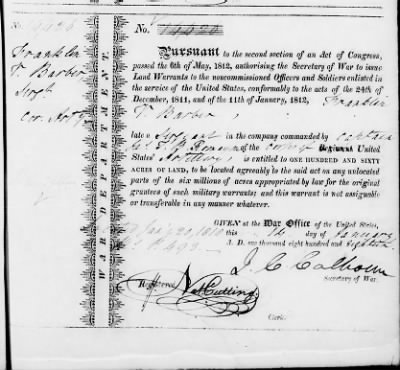 Franklin
T. Barber
Sergt
Cor. Art'y
WAR DEPARTMENT.
No. 14420
Pursuant to the second section of an Act of Congress,
passed the 6th of May, 1812, authorising the Secretary of War to issue
Land Warrants to the noncommissioned Officers and Soldiers enlisted in
the service of the United States, conformably to the acts of the 24th of
December, 1811, and of the 11th of January, 1812, Franklin
T. Barber,
late a Sergeant in the company commanded by Captain
of the Corps Regiment United
States' Artillery, is entitled to ONE HUNDRED AND SIXTY
ACRES OF LAND, to be located agreeably to the said act on any unlocated
parts of the six millions of acres appropriated by law for the original
grantees of such military warrants; and this warrant is not assignable
or transferable in any manner whatever.
GIVEN at the War Office of the United States,
this day of January
A. D. one thousand eight hundred and
J. C. Calhoun
Secretary of War.
Registered
Nat Cutting
Clerk.